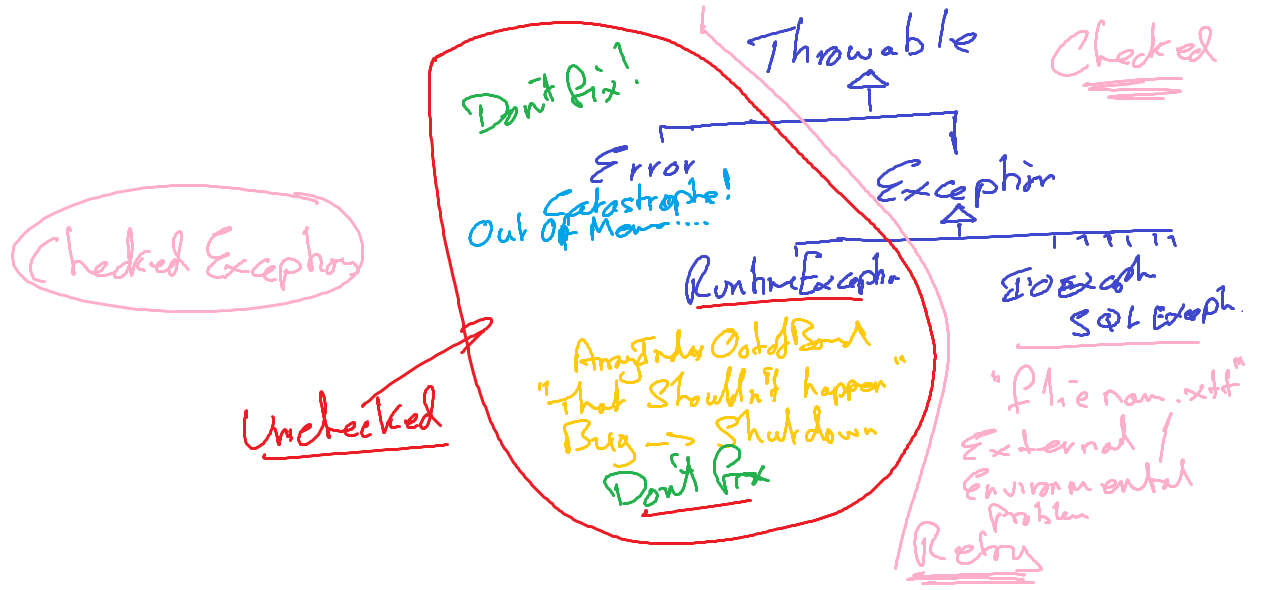 Throwable
Checked
Don't fix!
Error
Exception
Catastrophe!
Out Of Mem.....
Checked Exception
RuntimeExceptio
IO Exceptn
SQL Exceptn.
ArrayIndexOutofBound
"That Shouldn't happen"
Bug -> Shutdown
Don't fix
Unchecked
"filenam.txt"
External /
Environmental
Problem
Retry